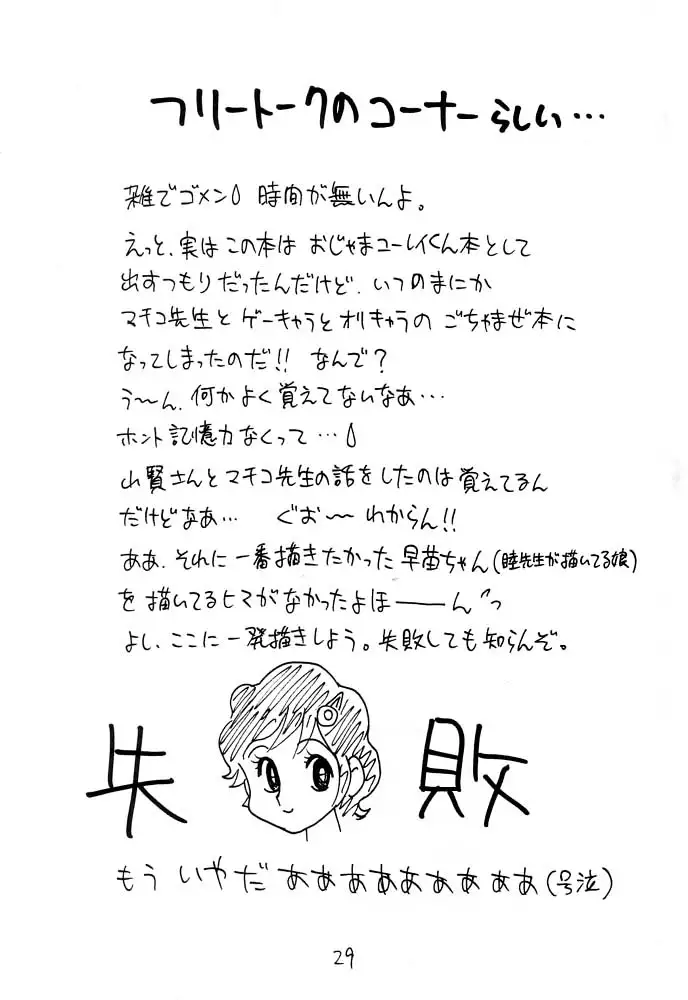 フリートークのコーナーらしい…
雑でゴメン 時間が無いんよ。
えっと、実はこの本は おじゃまユーレイくん本として
出すつもりだったんだけど、いつのまにか
マチコ先生と ゲーキャラとオリキャラの ごちゃまぜ本に
なってしまったのだ!! なんで?
う〜ん、何かよく覚えてないなあ…
ホント記憶力なくって…
山賢さんとマチコ先生の話をしたのは覚えてるん
だけどなあ… ぐお〜わからん!!
ああ、それに一番描きたかった早苗ちゃん(睦先生が描いてる娘)
を描いてるヒマがなかったよほーーん
よし、ここに一発描きしよう。失敗しても知らんぞ。
失 敗
もういやだあああああああああ(号泣)
29